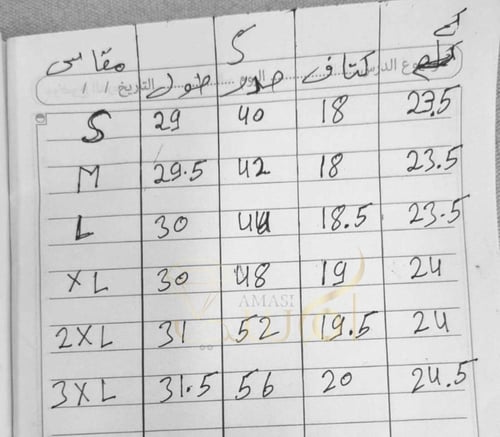 S
مقاس طول صدر كتاف كم
التاريخ / / اليوم موضوع الدرس
S 29 40 18 23.5
M 29.5 42 18 23.5
L 30 44 18.5 23.5
XL 30 48 19 24
AMASI
2XL 31 52 19.5 24
3XL 31.5 56 20 24.5